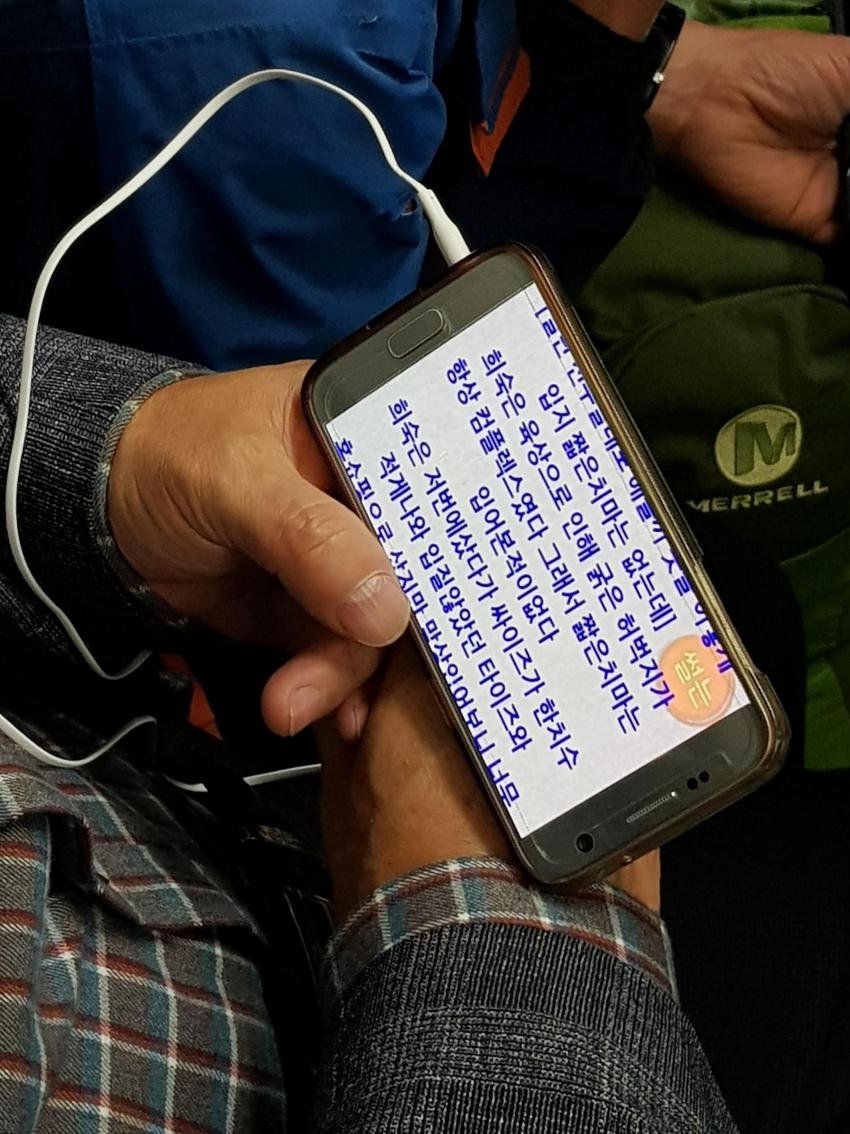 입지 짧은치마는 없는데]
희숙은 육상으로 인해 굵은 허벅지가
항상 컴플렉스였다 그래서 짧은치마는
입어본적이없다
희숙은 저번에샀다가 싸이즈가 한치수
적게나와 입질않았던 타이즈와
홈쇼핑으로 샀지만 막상입어보니 너무
썰는
MERRELL